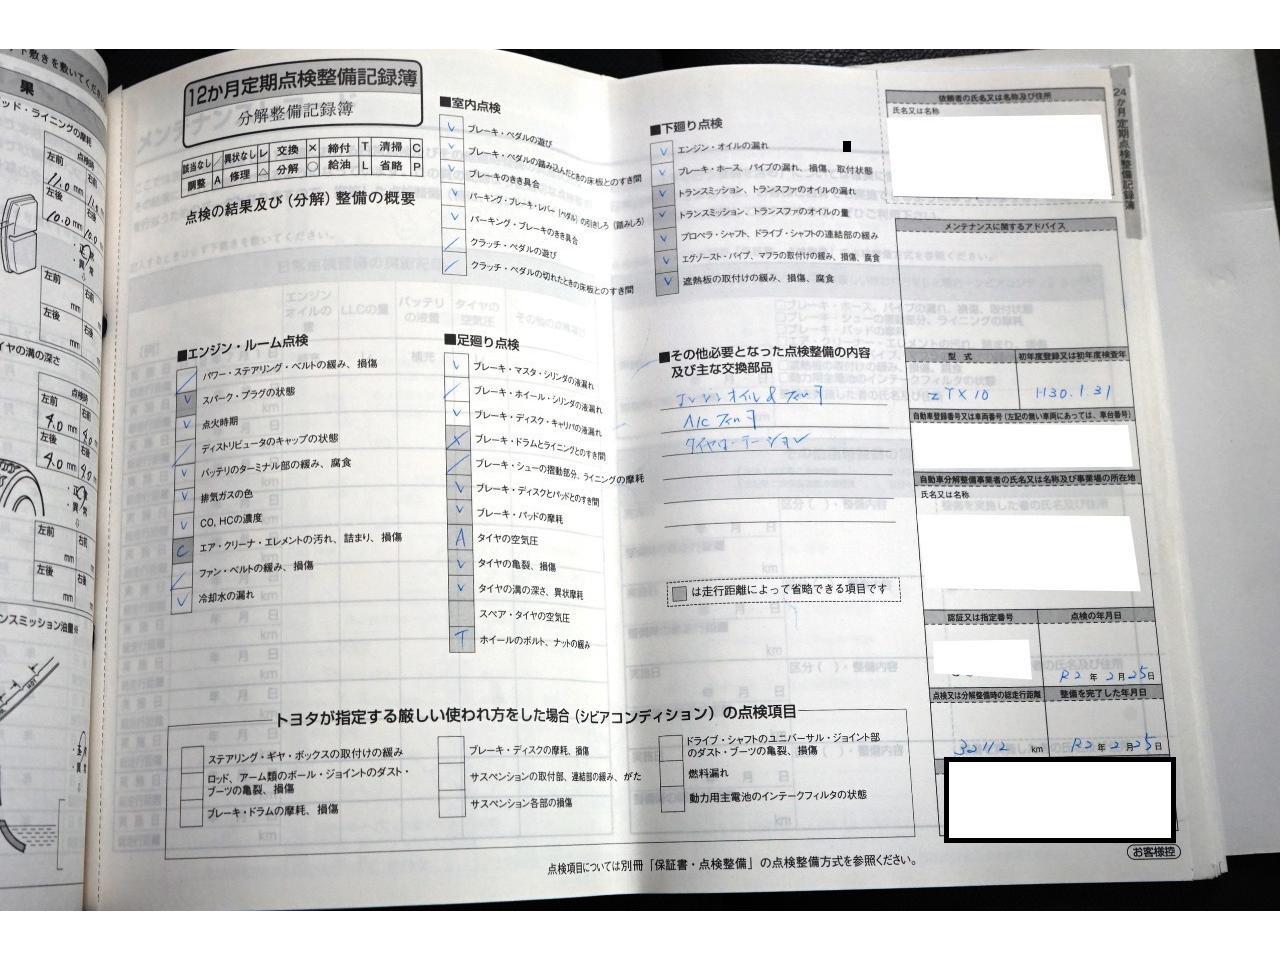 果
ッド・ライニングの摩耗
点検時
左前
右前
11.0
mm
左後
右後
10.0
mm
10.0
左前
右前
mm
左後
右後
mm
イヤの溝の深さ
点検時
左前
右前
4.0
mm
4.0
左後
右後
4.0
mm
4.0
左前
右前
mm
左後
右後
mm
ンスミッション油量※
12か月定期点検整備記録簿
分解整備記録簿
該当なし ／ 異状なし レ 交換 × 締付 T 清掃 C
調整 A 修理 △ 分解 ○ 給油 L 省略 P
点検の結果及び(分解)整備の概要
■エンジン・ルーム点検
／ パワー・ステアリング・ベルトの緩み、損傷
レ スパーク・プラグの状態
レ 点火時期
／ ディストリビュータのキャップの状態
レ バッテリのターミナル部の緩み、腐食
レ 排気ガスの色
レ CO, HCの濃度
C エア・クリーナ・エレメントの汚れ、詰まり、損傷
／ ファン・ベルトの緩み、損傷
レ 冷却水の漏れ
■室内点検
レ ブレーキ・ペダルの遊び
レ ブレーキ・ペダルの踏み込んだときの床板とのすき間
レ ブレーキのきき具合
レ パーキング・ブレーキ・レバー(ペダル)の引きしろ(踏みしろ)
レ パーキング・ブレーキのきき具合
／ クラッチ・ペダルの遊び
／ クラッチ・ペダルの切れたときの床板とのすき間
■足廻り点検
レ ブレーキ・マスタ・シリンダの液漏れ
／ ブレーキ・ホイール・シリンダの液漏れ
レ ブレーキ・ディスク・キャリパの液漏れ
ブレーキ・ドラムとライニングとのすき間
／ ブレーキ・シューの摺動部分、ライニングの摩耗
レ ブレーキ・ディスクとパッドとのすき間
レ ブレーキ・パッドの摩耗
A タイヤの空気圧
レ タイヤの亀裂、損傷
レ タイヤの溝の深さ、異状摩耗
スペア・タイヤの空気圧
T ホイールのボルト、ナットの緩み
■下廻り点検
レ エンジン・オイルの漏れ
レ ブレーキ・ホース、パイプの漏れ、損傷、取付状態
レ トランスミッション、トランスファのオイルの漏れ
レ トランスミッション、トランスファのオイルの量
レ プロペラ・シャフト、ドライブ・シャフトの連結部の緩み
レ エグゾースト・パイプ、マフラの取付けの緩み、損傷、腐食
レ 遮熱板の取付けの緩み、損傷、腐食
■その他必要となった点検整備の内容
及び主な交換部品
エンジンオイル&フィルタ
A/Cフィルタ
タイヤローテーション
は走行距離によって省略できる項目です
トヨタが指定する厳しい使われ方をした場合(シビアコンディション)の点検項目
ステアリング・ギヤ・ボックスの取付けの緩み
ロッド、アーム類のボール・ジョイントのダスト・
ブーツの亀裂、損傷
ブレーキ・ドラムの摩耗、損傷
ブレーキ・ディスクの摩耗、損傷
サスペンションの取付部、連結部の緩み、がた
サスペンション各部の損傷
ドライブ・シャフトのユニバーサル・ジョイント部
のダスト・ブーツの亀裂、損傷
燃料漏れ
動力用主電池のインテークフィルタの状態
点検項目については別冊「保証書・点検整備」の点検整備方式を参照ください。
依頼者の氏名又は名称及び住所
氏名又は名称
メンテナンスに関するアドバイス
型 式
初年度登録又は初年度検査年
ZYX10
H30.1.31
自動車登録番号又は車両番号(左記の無い車両にあっては、車台番号)
自動車分解整備事業者の氏名又は名称及び事業場の所在地
氏名又は名称
認証又は指定番号
点検の年月日
R2 年 2 月 25 日
点検又は分解整備時の総走行距離
整備を完了した年月日
32112 km
R2 年 2 月 25 日
お客様控
24か月定期点検整備記録簿